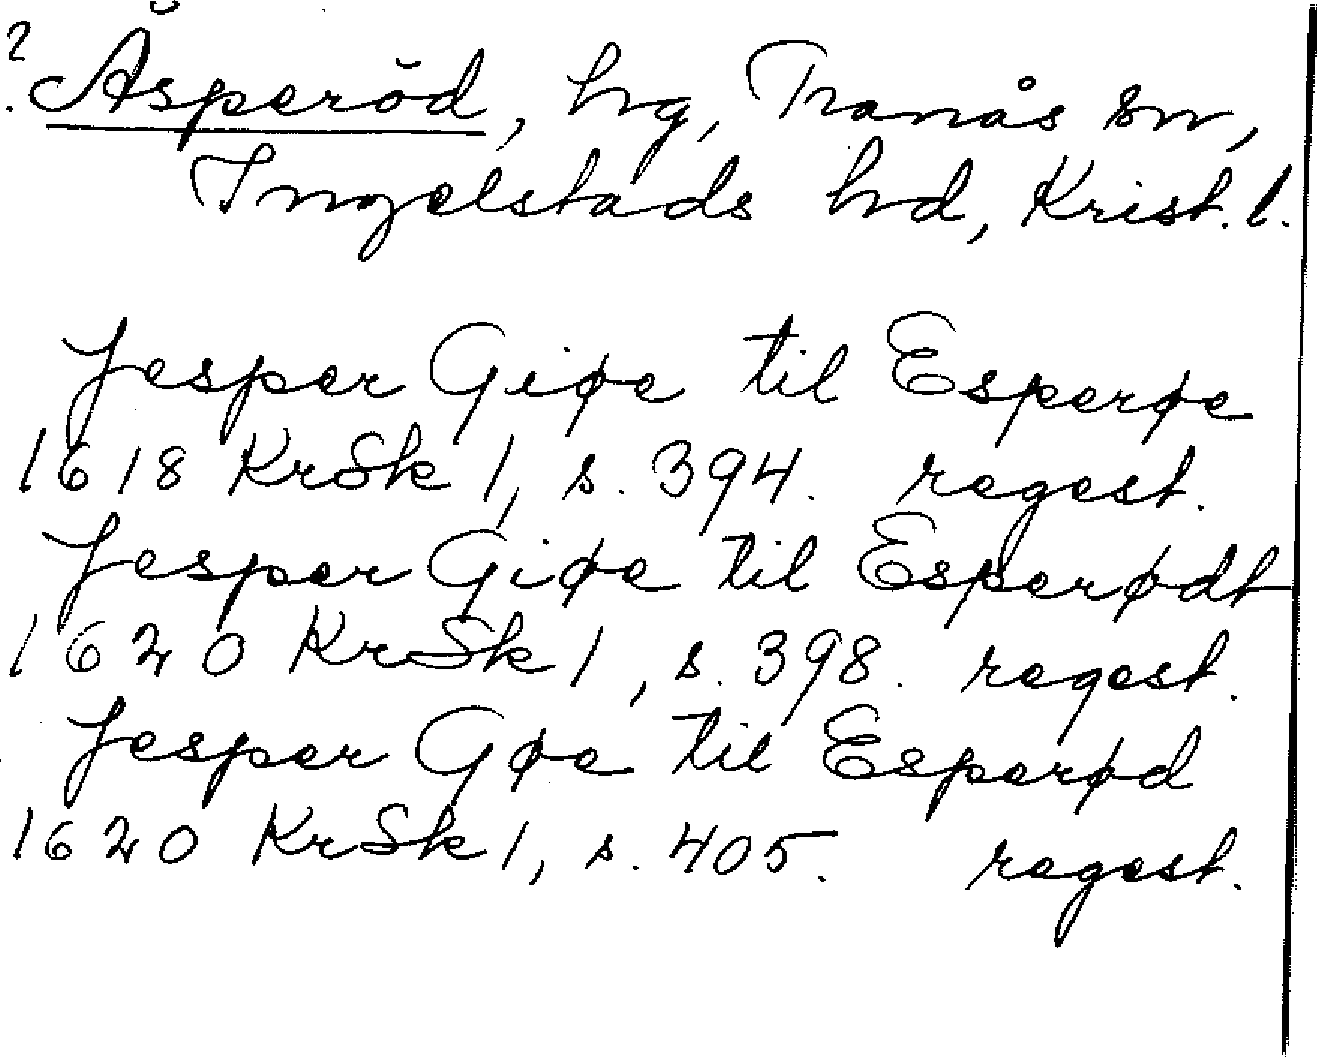 ? Åsperöd, hrg, Tranås sn,
Ingelstads hrd, Krist. l.
Jesper Giøe til Esperøe
1618 KrSk 1, s. 394. regest.
Jesper Giøe til Esperødt
1620 KrSk 1, s. 398. regest.
Jesper Gøe til Esperød
1620 KrSk 1, s. 405. regest.